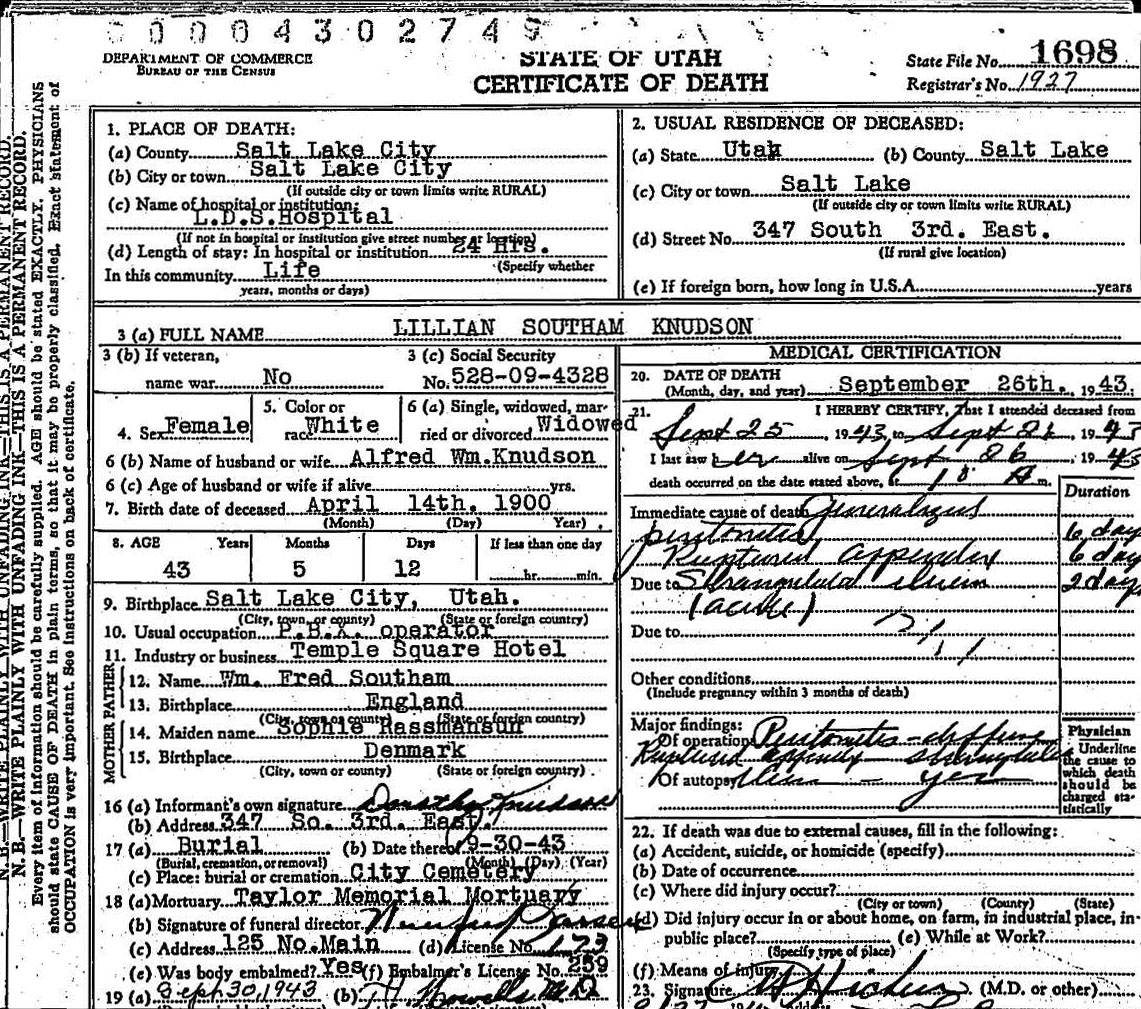 0004302749
DEPARTMENT OF COMMERCE
BUREAU OF THE CENSUS
STATE OF UTAH
CERTIFICATE OF DEATH
State File No. 1698
Registrar's No. 1937
N. B.—WRITE PLAINLY WITH UNFADING INK—THIS IS A PERMANENT RECORD.
N. B.—WRITE PLAINLY WITH UNFADING INK—THIS IS A PERMANENT RECORD.
Every item of information should be carefully supplied. AGE should be stated EXACTLY. PHYSICIANS
should state CAUSE OF DEATH in plain terms, so that it may be properly classified. Exact statement of
OCCUPATION is very important. See instructions on back of certificate.
1. PLACE OF DEATH:
(a) County Salt Lake City
(b) City or town Salt Lake City
(If outside city or town limits write RURAL)
(c) Name of hospital or institution:
L.D.S.Hospital
(If not in hospital or institution give street number or location)
(d) Length of stay: In hospital or institution 24 Hrs.
(Specify whether
In this community Life
years, months or days)
2. USUAL RESIDENCE OF DECEASED:
(a) State Utah (b) County Salt Lake
(c) City or town Salt Lake
(If outside city or town limits write RURAL)
(d) Street No. 347 South 3rd. East.
(If rural give location)
(e) If foreign born, how long in U.S.A. years
3 (a) FULL NAME LILLIAN SOUTHAM KNUDSON
3 (b) If veteran,
name war No
3 (c) Social Security
No. 528-09-4328
4. Sex Female
5. Color or
race White
6 (a) Single, widowed, mar-
ried or divorced Widowed
6 (b) Name of husband or wife Alfred Wm.Knudson
6 (c) Age of husband or wife if alive yrs.
7. Birth date of deceased April 14th. 1900
(Month) (Day) Year)
8. AGE Years Months Days If less than one day
43 5 12 hr. min.
9. Birthplace Salt Lake City, Utah.
(City, town, or county) (State or foreign country)
10. Usual occupation P.B.X. operator
11. Industry or business Temple Square Hotel
FATHER
12. Name Wm. Fred Southam
13. Birthplace England
(City, town or county) (State or foreign country)
MOTHER
14. Maiden name Sophie Rassmansun
15. Birthplace Denmark
(City, town or county) (State or foreign country)
16 (a) Informant's own signature Dorothy Knudson
(b) Address 347 So. 3rd. East.
17 (a) Burial (b) Date thereof 9-30-43
(Burial, cremation, or removal) (Month) (Day) (Year)
(c) Place: burial or cremation City Cemetery
18 (a) Mortuary Taylor Memorial Mortuary
(b) Signature of funeral director
(c) Address 125 No.Main (d) License No. 173
(e) Was body embalmed? Yes (f) Embalmer's License No. 259
19 (a) Sept 30, 1943 (b) M.D.
MEDICAL CERTIFICATION
20. DATE OF DEATH
(Month, day, and year) September 26th. 1943.
21. I HEREBY CERTIFY, That I attended deceased from
Sept 25, 1943, to Sept 26, 1943
I last saw her alive on Sept 26, 1943
death occurred on the date stated above, at A m.
Duration
Immediate cause of death Generalized
peritonitis 6 day
Ruptured appendix 6 day
Due to Strangulated ileum 2 days
(acute)
Due to
Other conditions
(Include pregnancy within 3 months of death)
Major findings:
Of operation Peritonitis - diffuse
Ruptured appendix - strangulated
Of autopsy ileum - yes
Physician
Underline
the cause to
which death
should be
charged sta-
tistically
22. If death was due to external causes, fill in the following:
(a) Accident, suicide, or homicide (specify)
(b) Date of occurrence
(c) Where did injury occur?
(City or town) (County) (State)
(d) Did injury occur in or about home, on farm, in industrial place, in
public place? (e) While at Work?
(Specify type of place)
(f) Means of injury
23. Signature (M.D. or other)